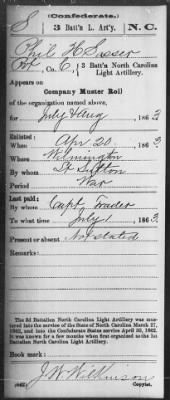 (Confederate.)
S 3 Batt'n L. Art'y. N.C.
Phil H Sasser
Pvt, Co. C, 3 Batt'n North Carolina
Light Artillery.
Appears on
Company Muster Roll
of the organization named above,
for July & Aug, 1863
Enlisted:
When Apr 20, 1863
Where Wilmington
By whom Lt Sutton
Period War
Last paid:
By whom Capt.
To what time July 1, 1863
Present or absent Not stated
Remarks:
The 3d Battalion North Carolina Light Artillery was mustered
into the service of the State of North Carolina March 17,
1862, and into the Confederate States service April 30, 1862.
It was known for a few months when first organized as the 1st
Battalion North Carolina Light Artillery.
Book mark:
J W Wilkinson
(642) Copyist.